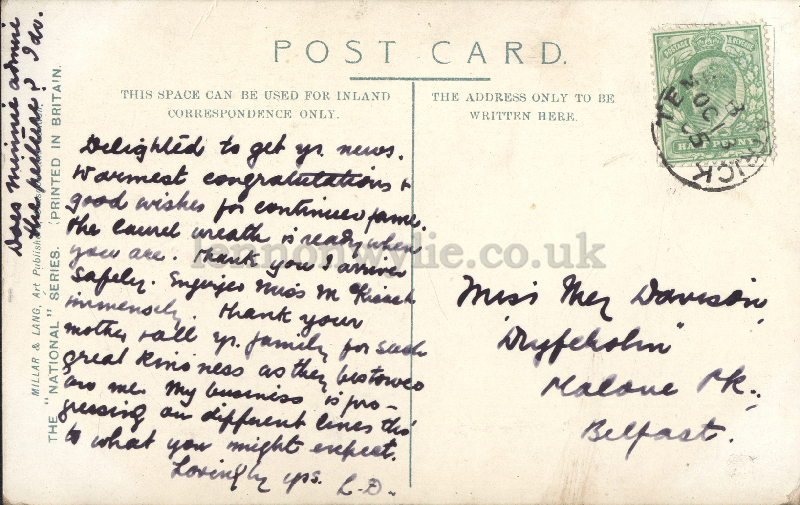 POST CARD.
THIS SPACE CAN BE USED FOR INLAND
CORRESPONDENCE ONLY.
THE ADDRESS ONLY TO BE
WRITTEN HERE.
POSTAGE REVENUE
HALFPENNY
Does Minnie admire
the picture? I do.
MILLAR & LANG, Art Publishers
THE "NATIONAL" SERIES. (PRINTED IN BRITAIN.
Delighted to get yr. news.
Warmest congratulations &
good wishes for continued fame.
The laurel wreath is ready when
you are. Thank you I arrived
safely. Enjoyed Miss M
immensely. Thank your
mother & all yr. family for such
great kindness as they bestowed
on me. My business is pro-
gressing on different lines tho'
to what you might expect.
Lovingly yrs. L.D.
Miss Meg Davison,
"Dryfeholm"
Malone Pk.
Belfast.
lennonwylie.co.uk